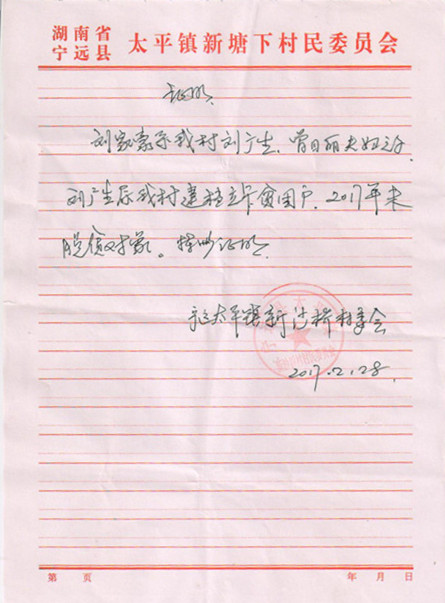 湖南省
宁远县
太平镇新塘下村民委员会
证明
刘 系我村刘广生、曾日丽夫妇之
刘广生属我村建档立卡贫困户,2017年未
脱贫对象。特此证明
太平镇新 桥村委会
2017.2.28.
第 页
年 月 日